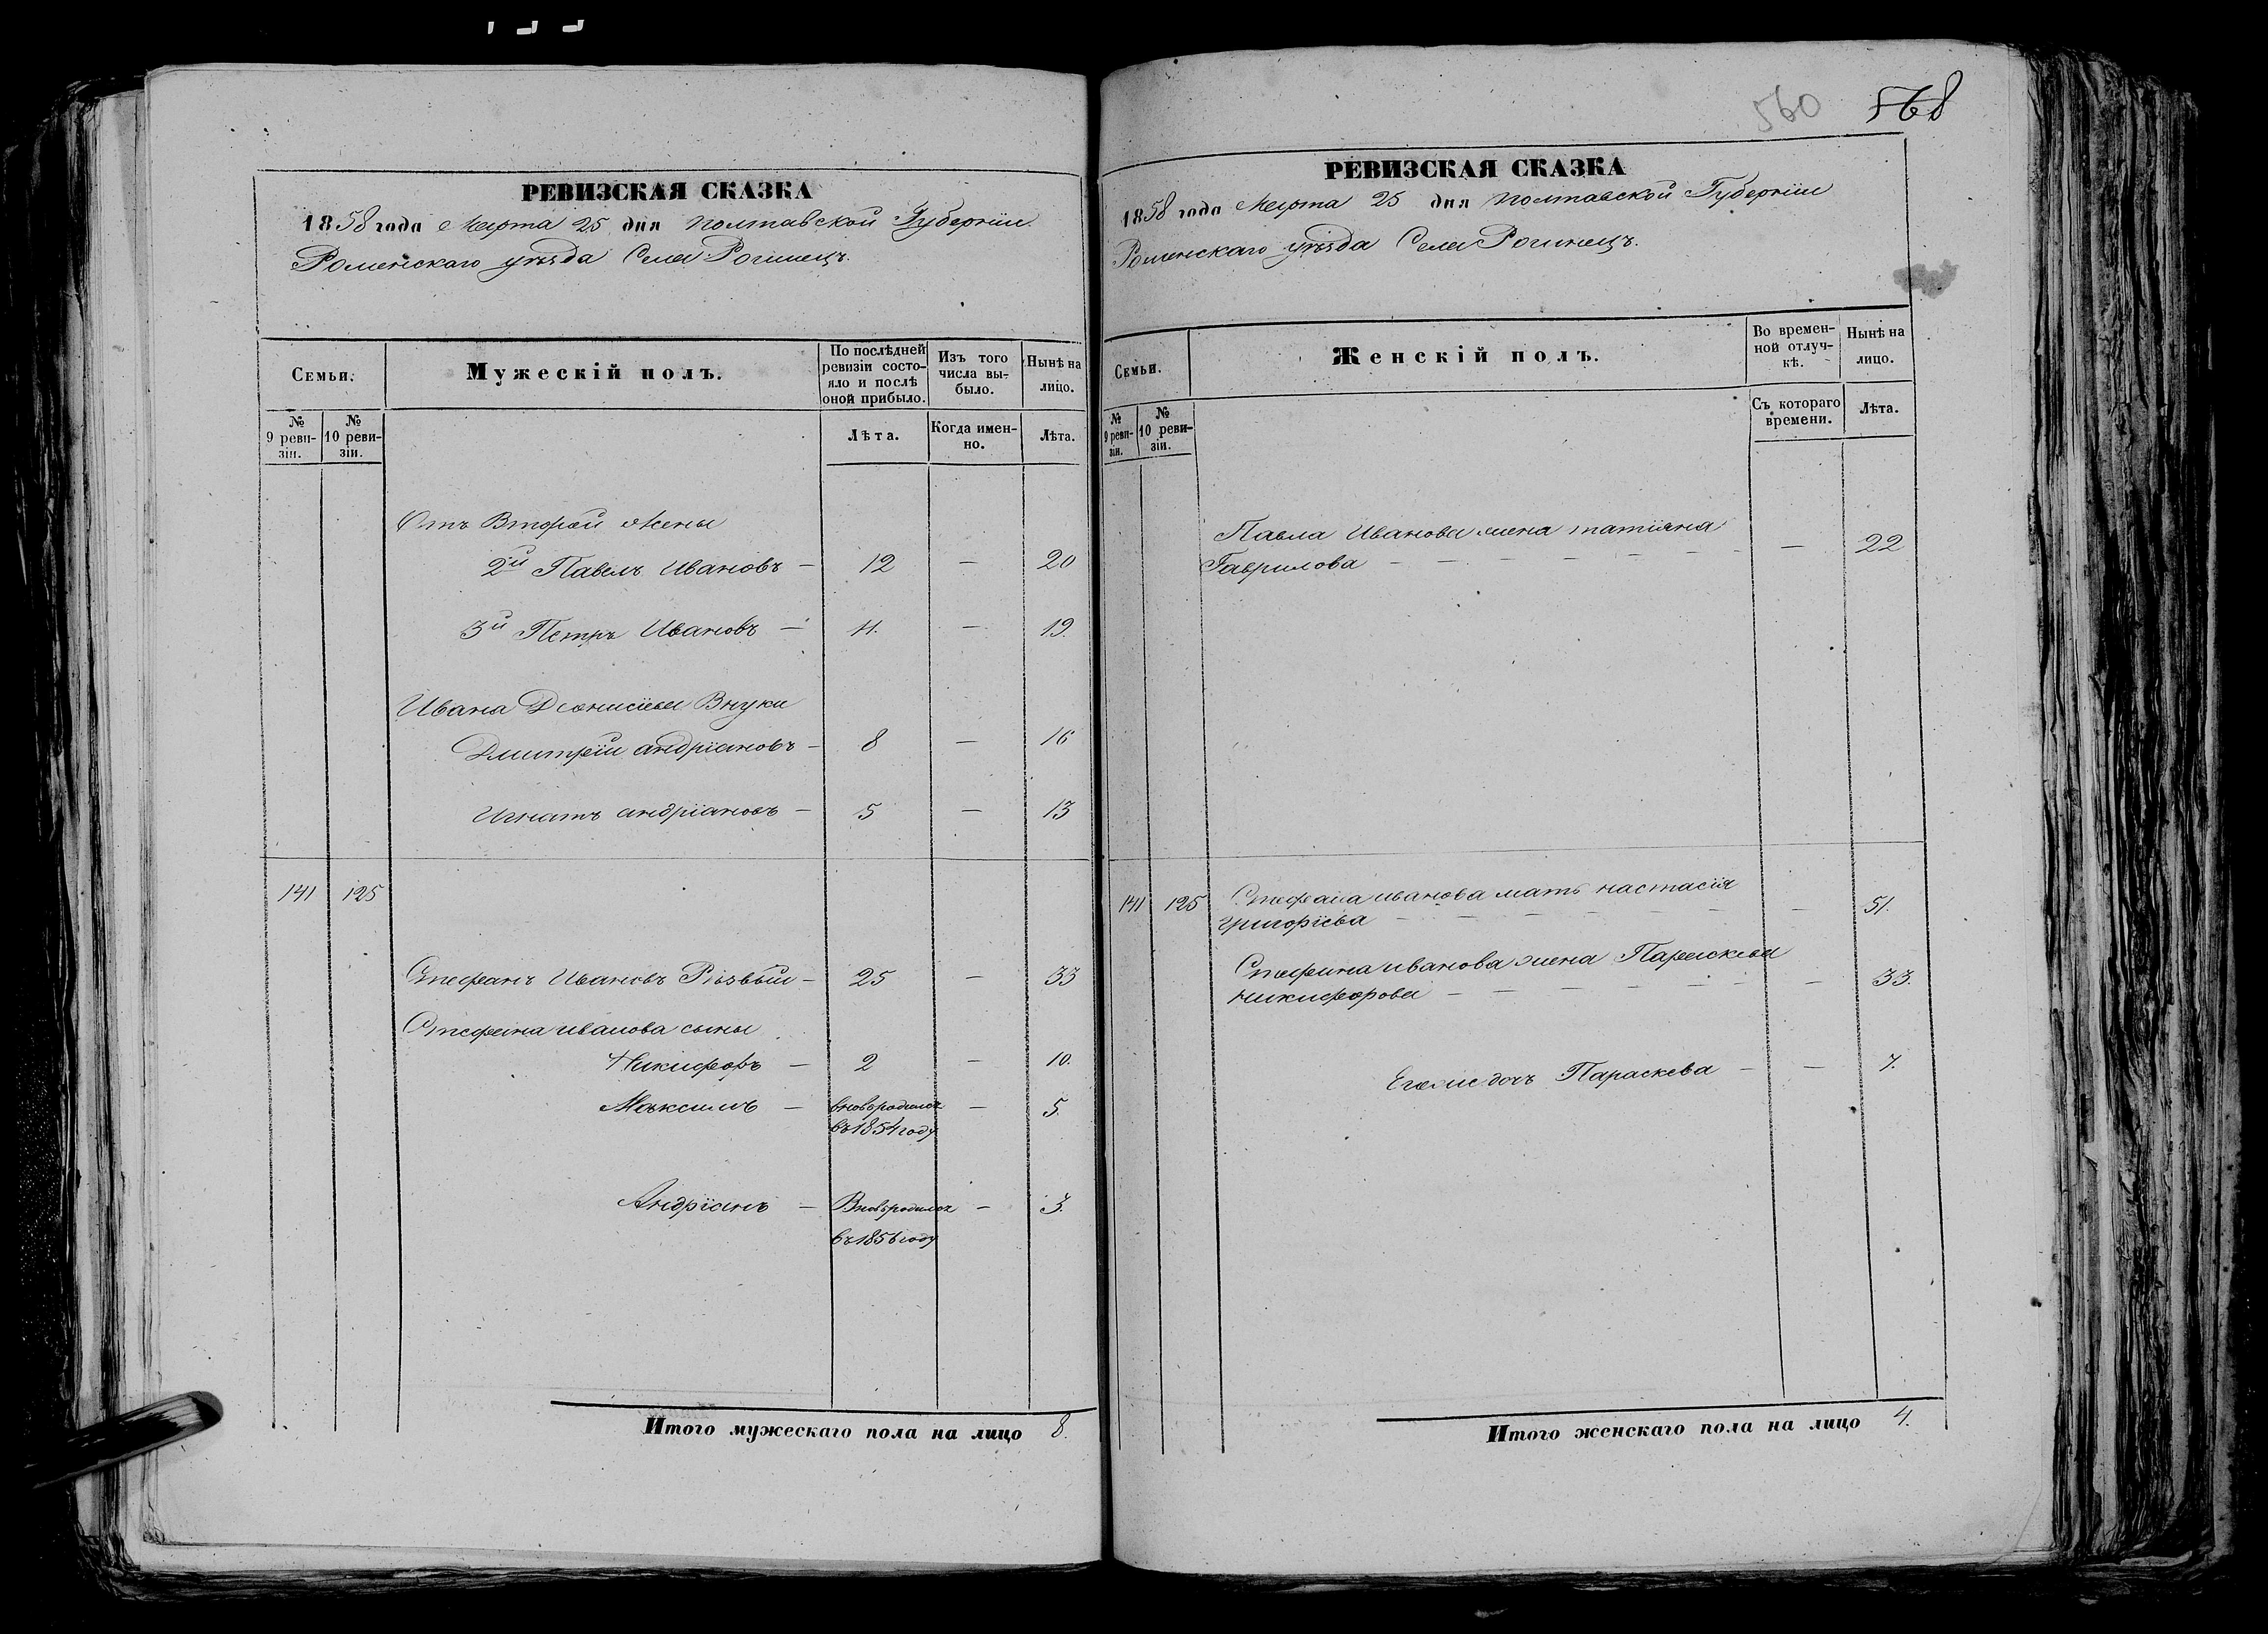 560 568
РЕВИЗСКАЯ СКАЗКА
1858 года Марта 25 дня Полтавской Губерніи
Роменскаго уѣзда Села Рогинецъ.
Семьи.
Мужескій полъ.
По послѣдней ревизіи состояло и послѣ оной прибыло.
Изъ того числа выбыло.
Нынѣ на лицо.
№ 9 ревизіи.
№ 10 ревизіи.
Лѣта.
Когда именно.
Лѣта.
Отъ Второй жены
2й Павелъ Ивановъ — 12 — 20
3й Петръ Ивановъ — 11. — 19.
Ивана Деонисіева Внуки
Дмитрій андріановъ — 8 — 16
Игнатъ андріановъ — 5 — 13
141 125
Стефанъ Ивановъ Різвый — 25 — 33
Стефана иванова сыны
Никифоръ — 2 — 10.
Максимъ — вновьродился — 5.
въ 1854 году
Андріанъ — Вновьродился — 3.
въ 1856 году
Итого мужескаго пола на лицо 8.
РЕВИЗСКАЯ СКАЗКА
1858 года Марта 25 дня Полтавской Губерніи
Роменскаго уѣзда Села Рогинецъ.
Семьи.
Женскій полъ.
Во временной отлучкѣ.
Нынѣ на лицо.
№ 9 ревизіи.
№ 10 ревизіи.
Съ котораго времени.
Лѣта.
Павла Иванова жена татіяна
Гаврилова — — 22
141 125 Стефана иванова мать настасія
григоріева — — 51.
Стефана иванова жена Параскева
никифорова — — 33.
Егоже дочъ Параскева — — 7.
Итого женскаго пола на лицо 4.